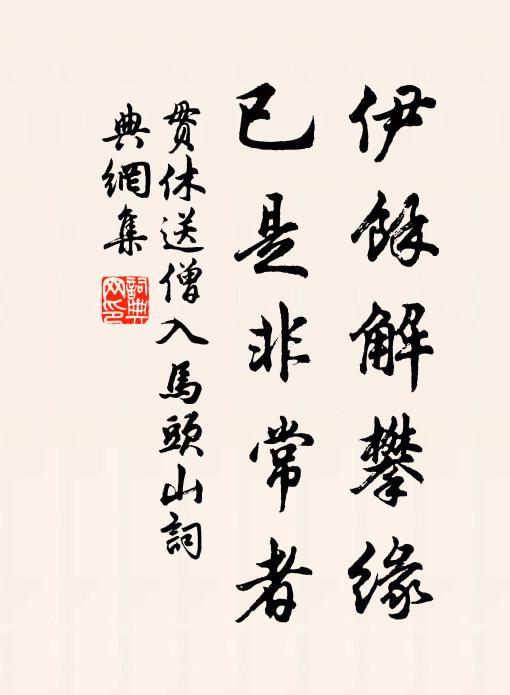 伊餘解攀緣
已是非常者
貫休送僧入馬頭山詞
典網集
詞典
网印